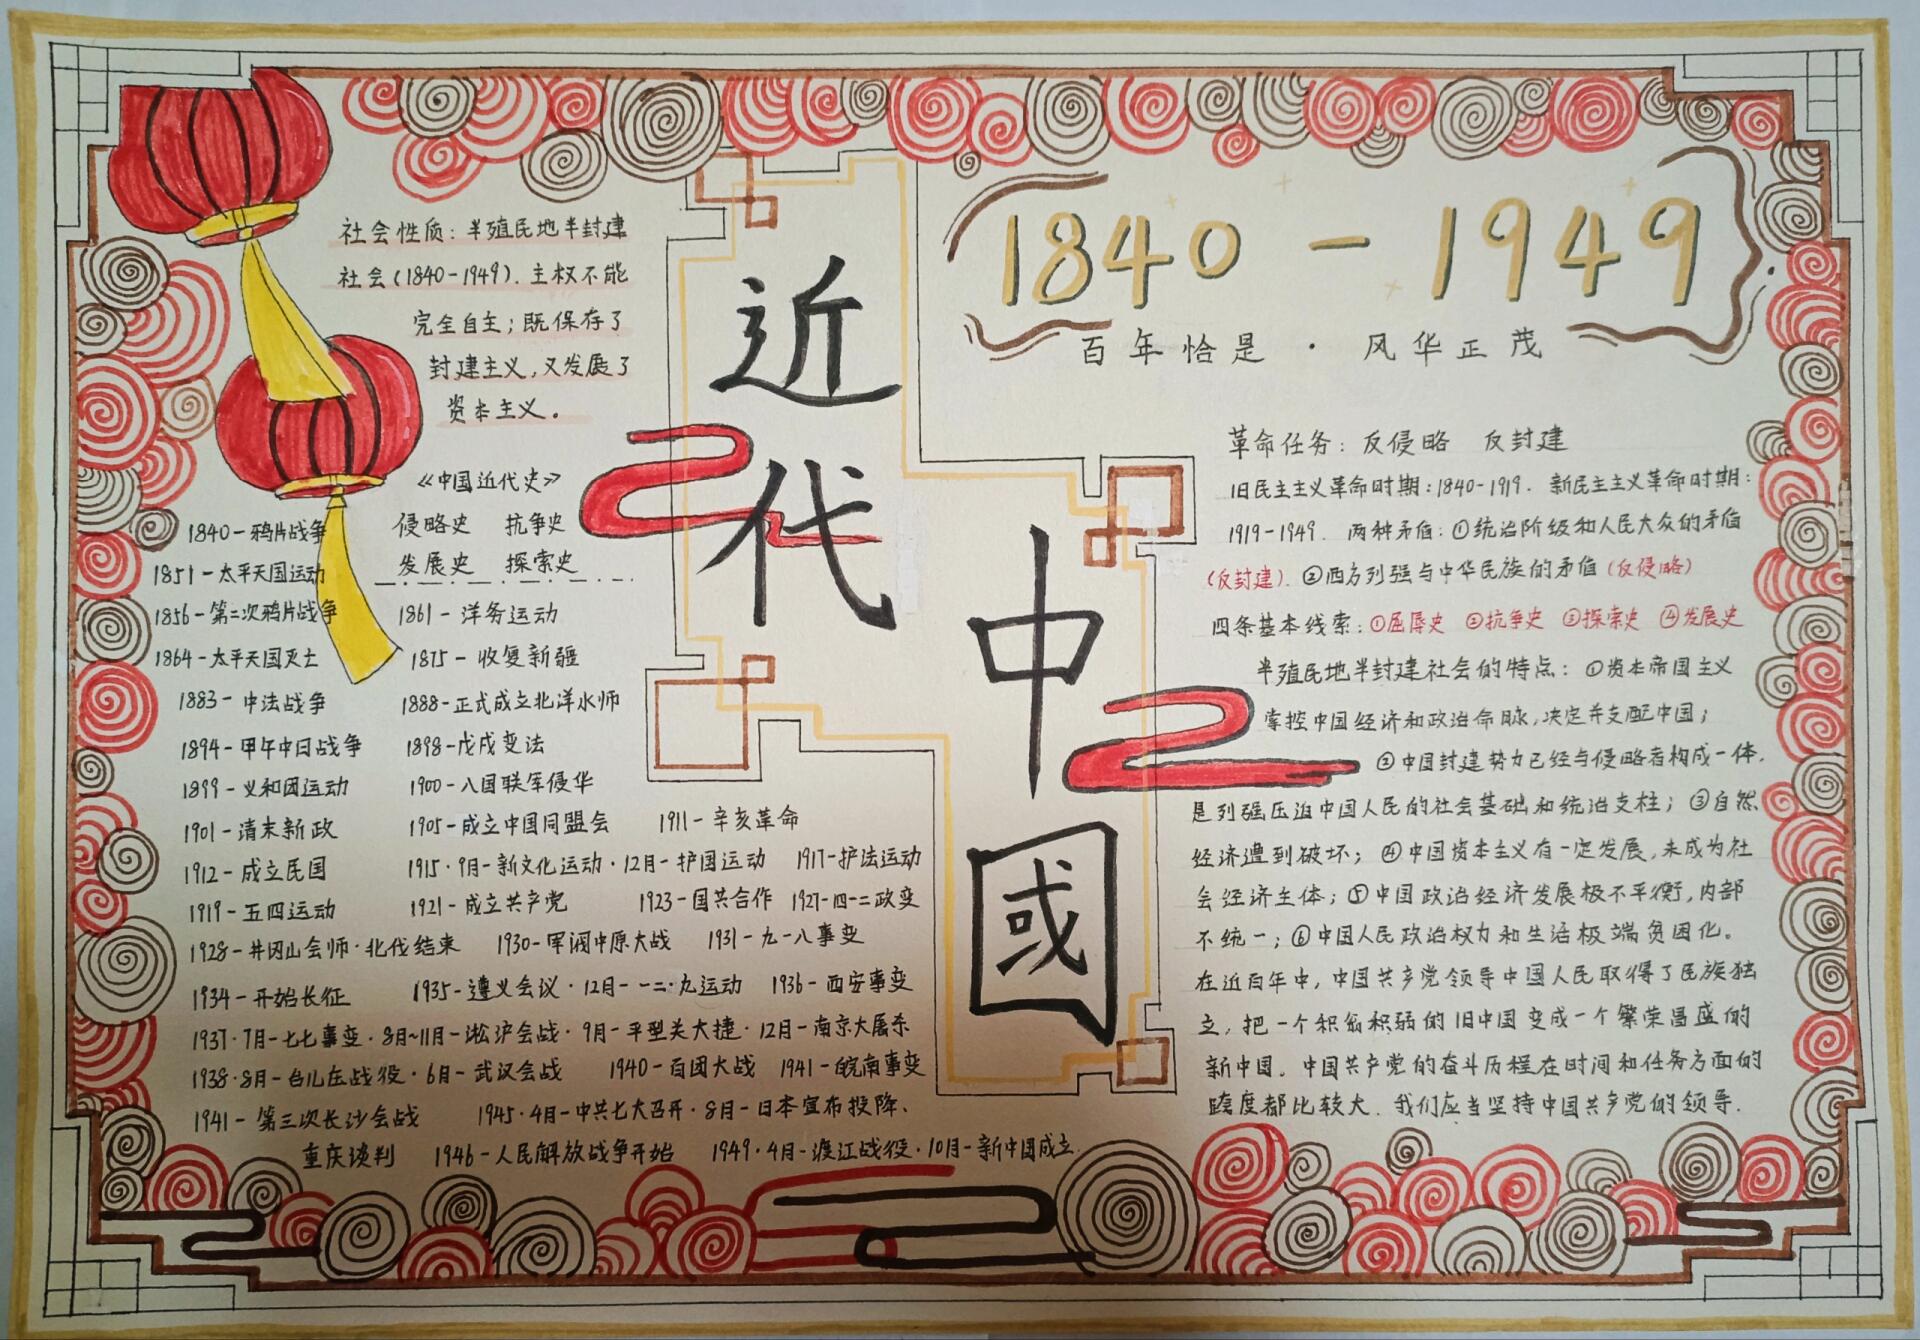 近代
中國
1840-1949
百年恰是·风华正茂
社会性质：半殖民地半封建
社会(1840-1949).主权不能
完全自主；既保存了
封建主义,又发展了
资本主义。
《中国近代史》
侵略史 抗争史
发展史 探索史
1840-鸦片战争
1851-太平天国运动
1856-第二次鸦片战争 1861-洋务运动
1864-太平天国灭亡 1875-收复新疆
1883-中法战争 1888-正式成立北洋水师
1894-甲午中日战争 1898-戊戌变法
1899-义和团运动 1900-八国联军侵华
1901-清末新政 1905-成立中国同盟会 1911-辛亥革命
1912-成立民国 1915·9月-新文化运动·12月-护国运动 1917-护法运动
1919-五四运动 1921-成立共产党 1923-国共合作 1927-四一二政变
1928-井冈山会师·北伐结束 1930-军阀中原大战 1931-九一八事变
1934-开始长征 1935-遵义会议·12月-一二·九运动 1936-西安事变
1937·7月-七七事变·8月~11月-淞沪会战·9月-平型关大捷·12月-南京大屠杀
1938·8月-台儿庄战役·6月-武汉会战 1940-百团大战 1941-皖南事变
1941-第三次长沙会战 1945·4月-中共七大召开·8月-日本宣布投降、
重庆谈判 1946-人民解放战争开始 1949·4月-渡江战役·10月-新中国成立.
革命任务：反侵略 反封建
旧民主主义革命时期：1840-1919. 新民主主义革命时期：
1919-1949. 两种矛盾：①统治阶级和人民大众的矛盾
(反封建).②西方列强与中华民族的矛盾(反侵略)
四条基本线索：①屈辱史 ②抗争史 ③探索史 ④发展史
半殖民地半封建社会的特点：①资本帝国主义
掌控中国经济和政治命脉,决定并支配中国；
②中国封建势力已经与侵略者构成一体.
是列强压迫中国人民的社会基础和统治支柱；③自然
经济遭到破坏；④中国资本主义有一定发展,未成为社
会经济主体；⑤中国政治经济发展极不平衡,内部
不统一；⑥中国人民政治权力和生活极端贫困化。
在近百年中,中国共产党领导中国人民取得了民族独
立,把一个积贫积弱的旧中国变成一个繁荣昌盛的
新中国。中国共产党的奋斗历程在时间和任务方面的
跨度都比较大.我们应当坚持中国共产党的领导.